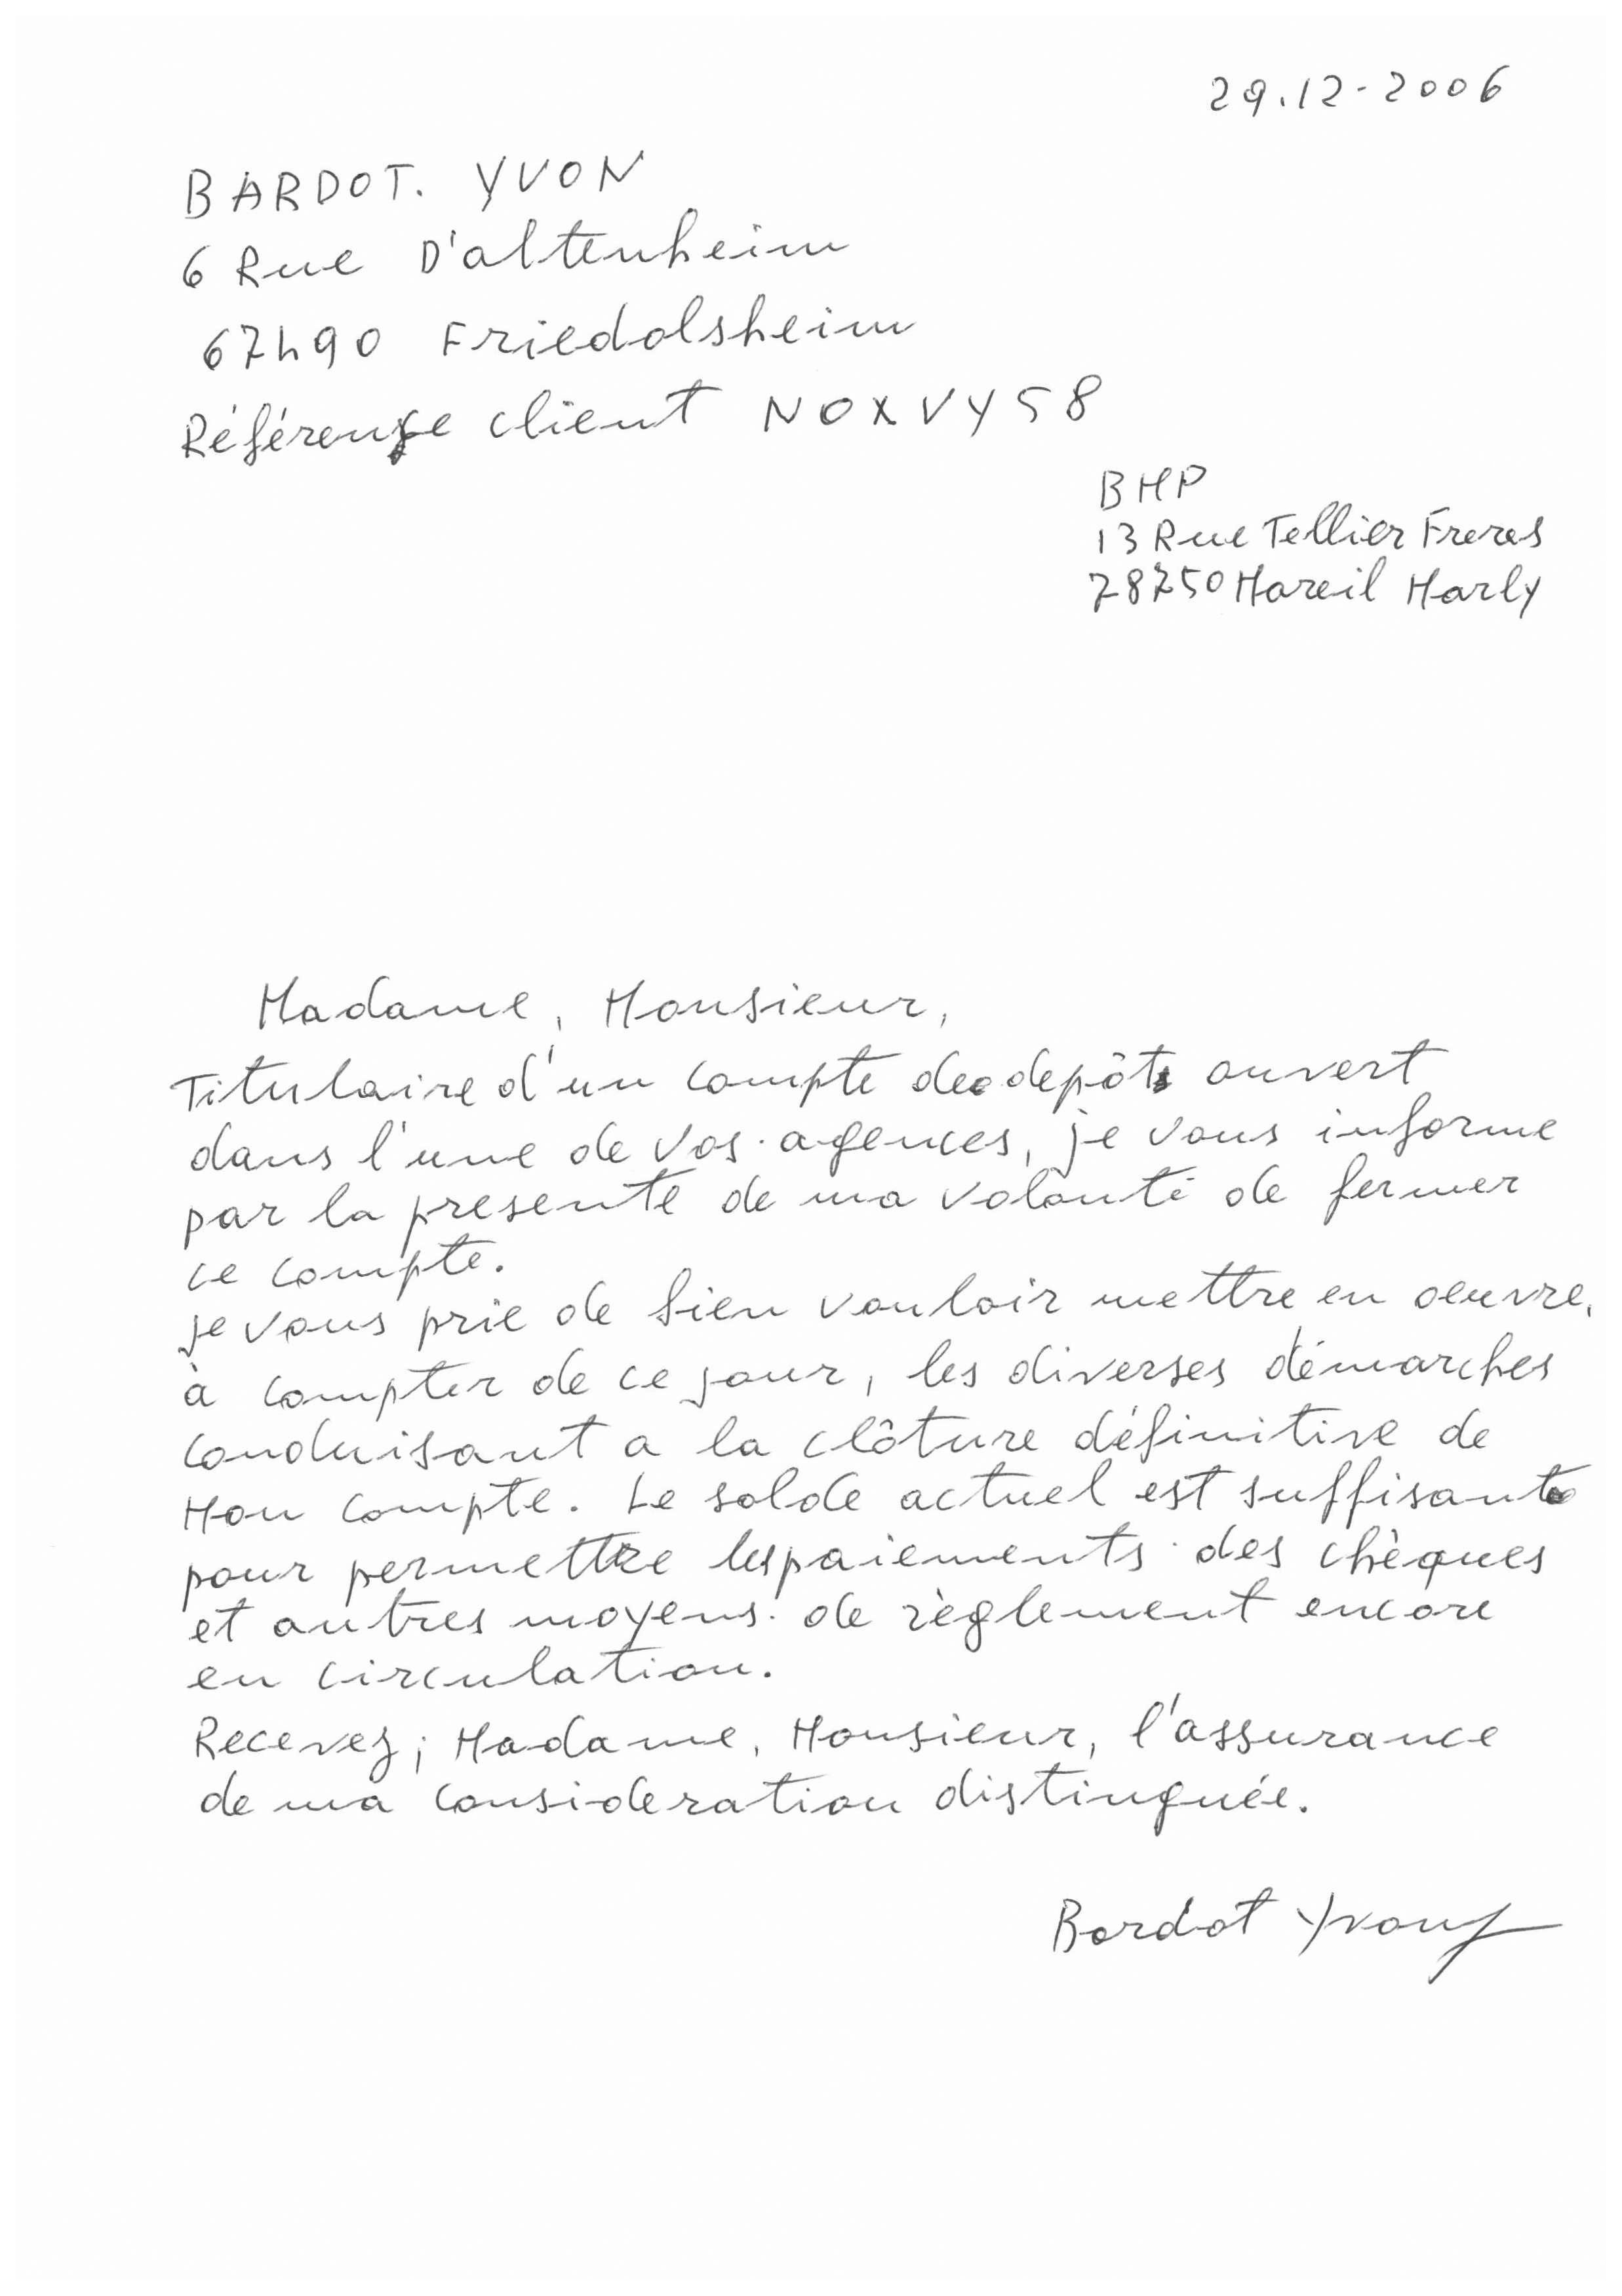 29.12-2006
BARDOT. YVON
6 Rue D'altenheim
67490 Friedolsheim
Référence client NOXVY58
BMP
13 Rue Tellier Freres
78750 Mareil Marly
Madame, Monsieur,
Titulaire d'un compte de depôts ouvert
dans l'une de vos agences, je vous informe
par la presente de ma volonté de fermer
ce compte.
je vous prie de bien vouloir mettre en oeuvre,
à compter de ce jour, les diverses démarches
conduisant a la clôture définitive de
Mon compte. Le solde actuel est suffisant
pour permettre les paiements des chèques
et autres moyens de règlement encore
en circulation.
Recevez; Madame, Monsieur, l'assurance
de ma consideration distinguée.
Bardot Yvon